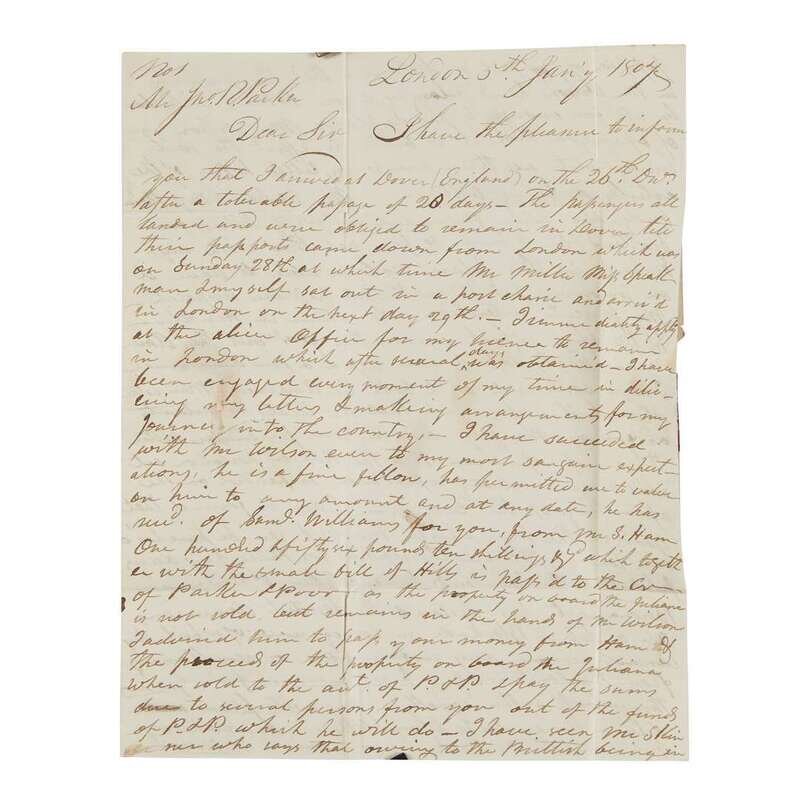 No 1 London 5th Jan'y 1807
Mr Jno. P. Parker
Dear Sir I have the pleasure to inform
you that I arrived at Dover (England) on the 26th
after a tolerable passage of 20 days – The passengers all
landed and were obliged to remain in Dover till
their passports came down from London which was
on Sunday 28th at which time Mr Miller Miss Speak
man & myself sat out in a post chaise and arriv'd
in London on the next day 29th. – I immediately apply
at the alien Office for my licence to remain
in London which after several days was obtained – I have
been engaged every moment of my time in deliv-
ering my letters & making arrangements for my
Journey into the country, – I have succeeded
with Mr Wilson even to my most sanguine expect-
ations, he is a fine fellow, has permitted me to value
on him to any amount and at any date, he has
recd. of Saml. Williams for you, from Mr S. Ham
One hundred & fifty six pounds ten shillings which togeth
er with the small bill of Hills is pass'd to the Cr
of Parker & Poor as the property on board the Juliana
is not sold but remains in the hands of Mr Wilson
I advised him to pass your money from Ham &
the proceeds of the property on board the Juliana
when sold to the act. of P. & P. & pay the sums
due to several persons from you out of the funds
of P. & P. which he will do – I have seen Mr Skin
ner who says that owing to the Brittish being in